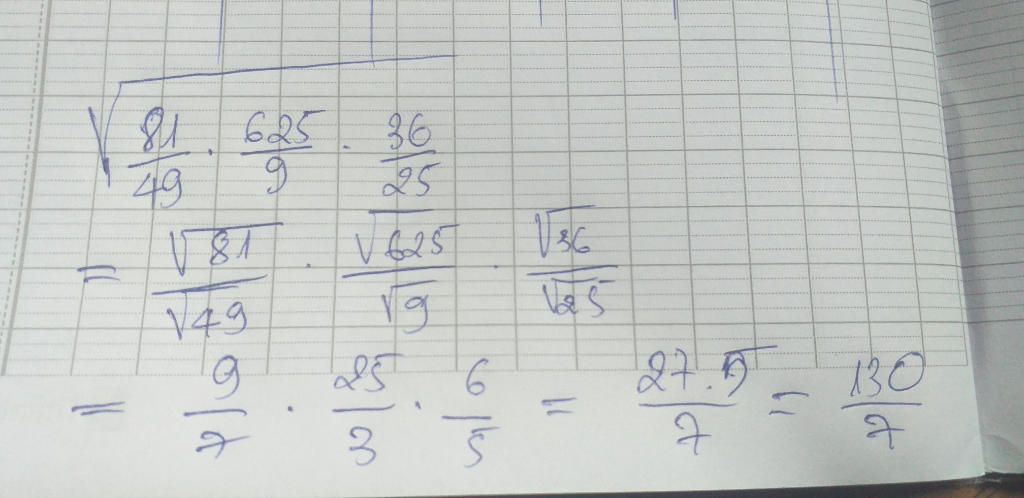 √(81/49 · 625/9 · 36/25)
= √81/√49 · √625/√9 · √36/√25
= 9/7 · 25/3 · 6/5 = 27.5/7 = 130/7